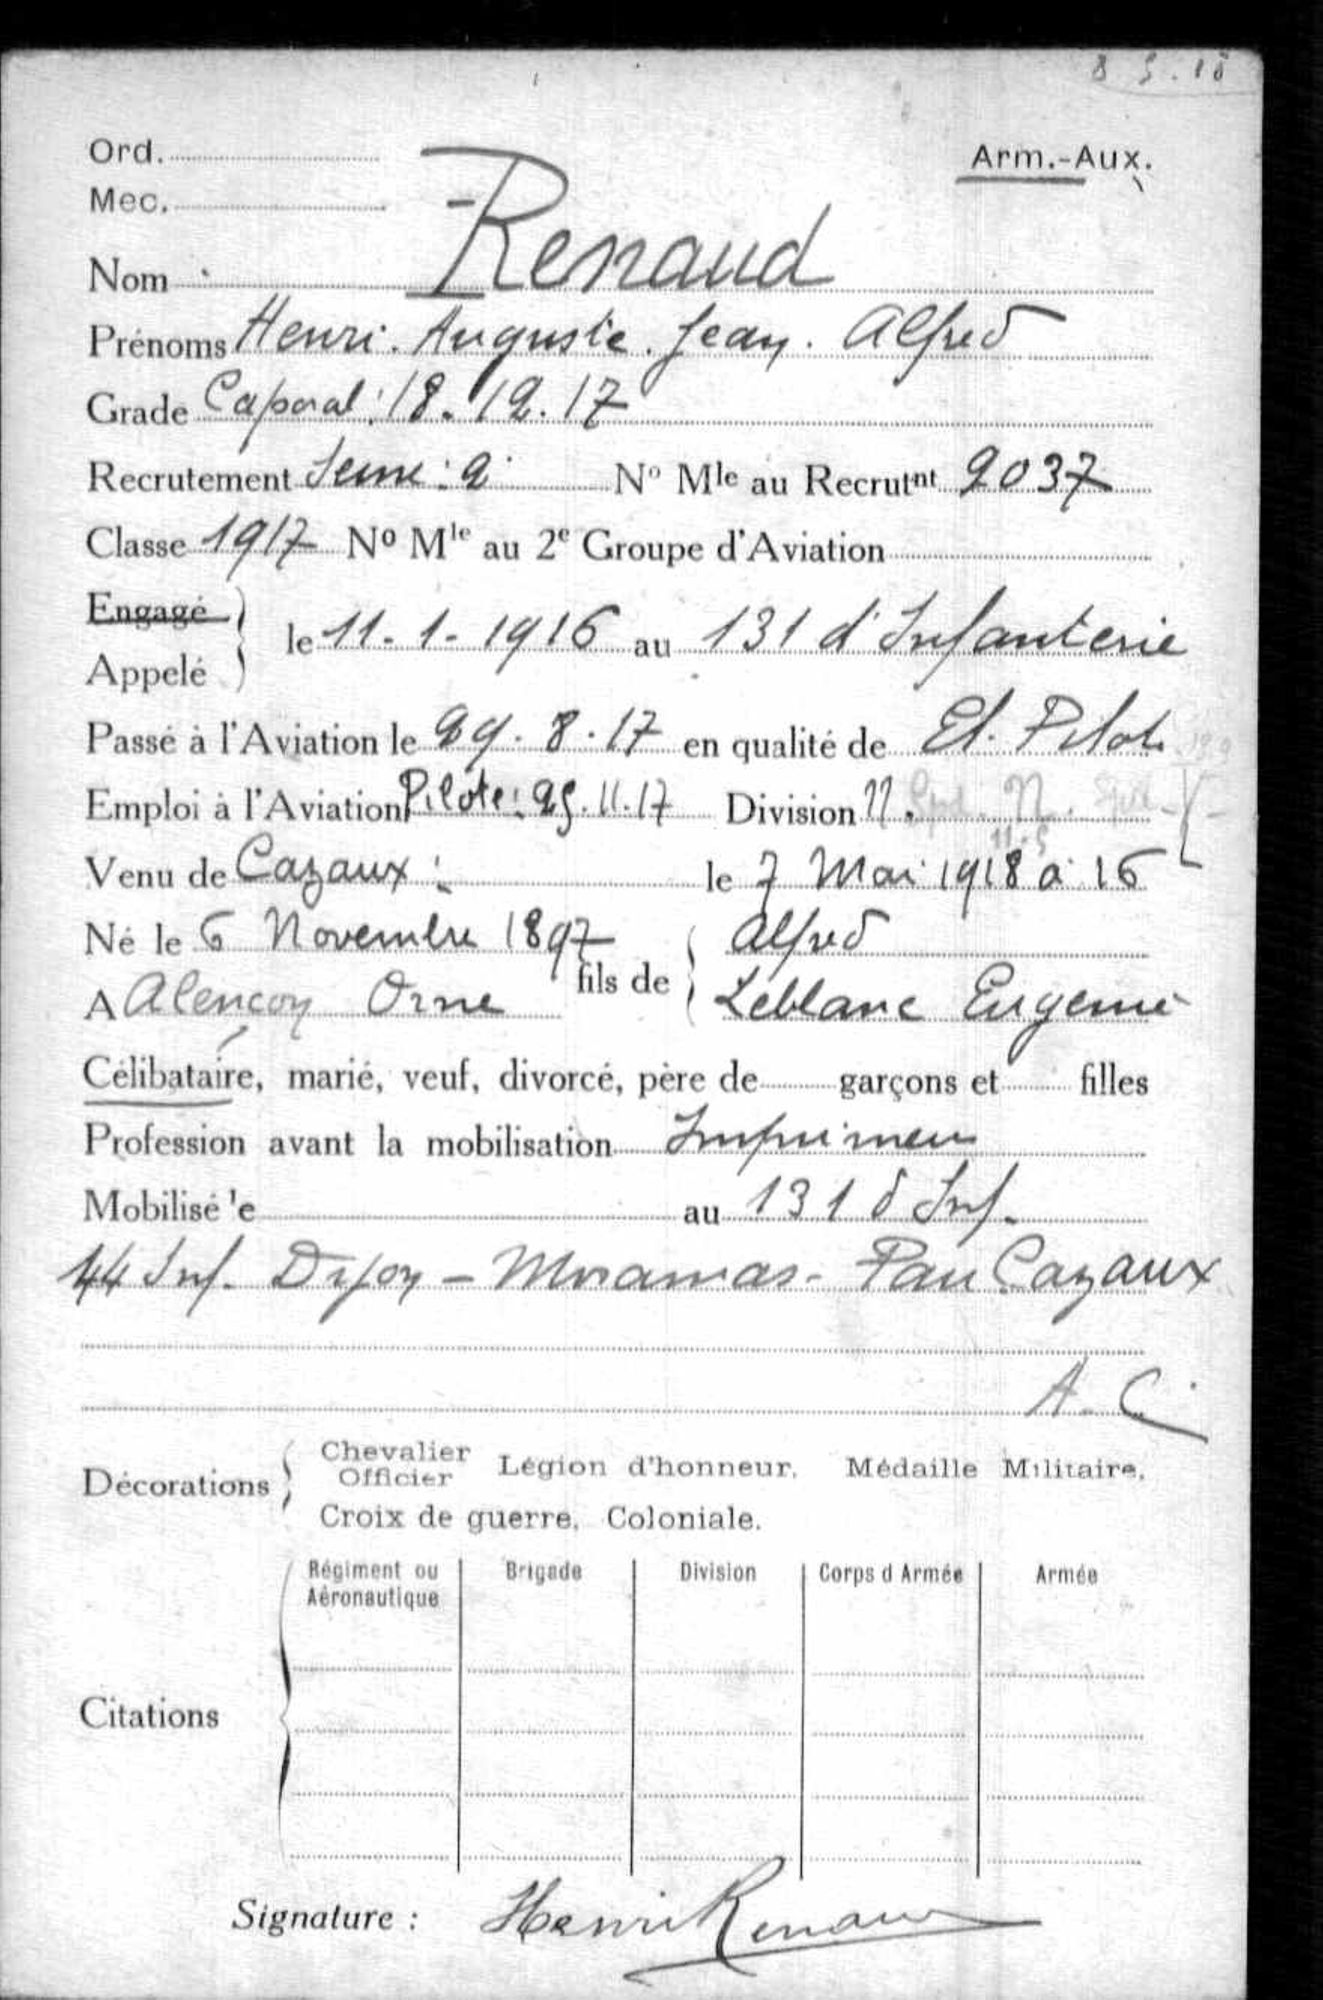 8 5.18
Ord.
Arm.-Aux.
Mec.
Nom Renaud
Prénoms Henri. Auguste. Jean. Alfred
Grade Caporal: 18.12.17
Recrutement Seine: 2 No Mle au Recrutnt 2037
Classe 1917 No Mle au 2e Groupe d'Aviation
Engagé
Appelé
le 11-1-1916 au 131 d'Infanterie
Passé à l'Aviation le 29.8.17 en qualité de El. Pilote
Emploi à l'Aviation Pilote: 25.11.17 Division
Venu de Cazaux: le 7 Mai 1918 à 16
Né le 6 Novembre 1897 fils de Alfred
A Alençon Orne Leblanc Eugenie
Célibataire, marié, veuf, divorcé, père de garçons et filles
Profession avant la mobilisation Imprimeur
Mobilisé le au 131 d Inf.
44 Inf. Dijon - Miramas - Pau Cazaux
A. C
Décorations Chevalier Officier Légion d'honneur. Médaille Militaire.
Croix de guerre. Coloniale.
Régiment ou Aéronautique Brigade Division Corps d Armée Armée
Citations
Signature : Henri Renaud